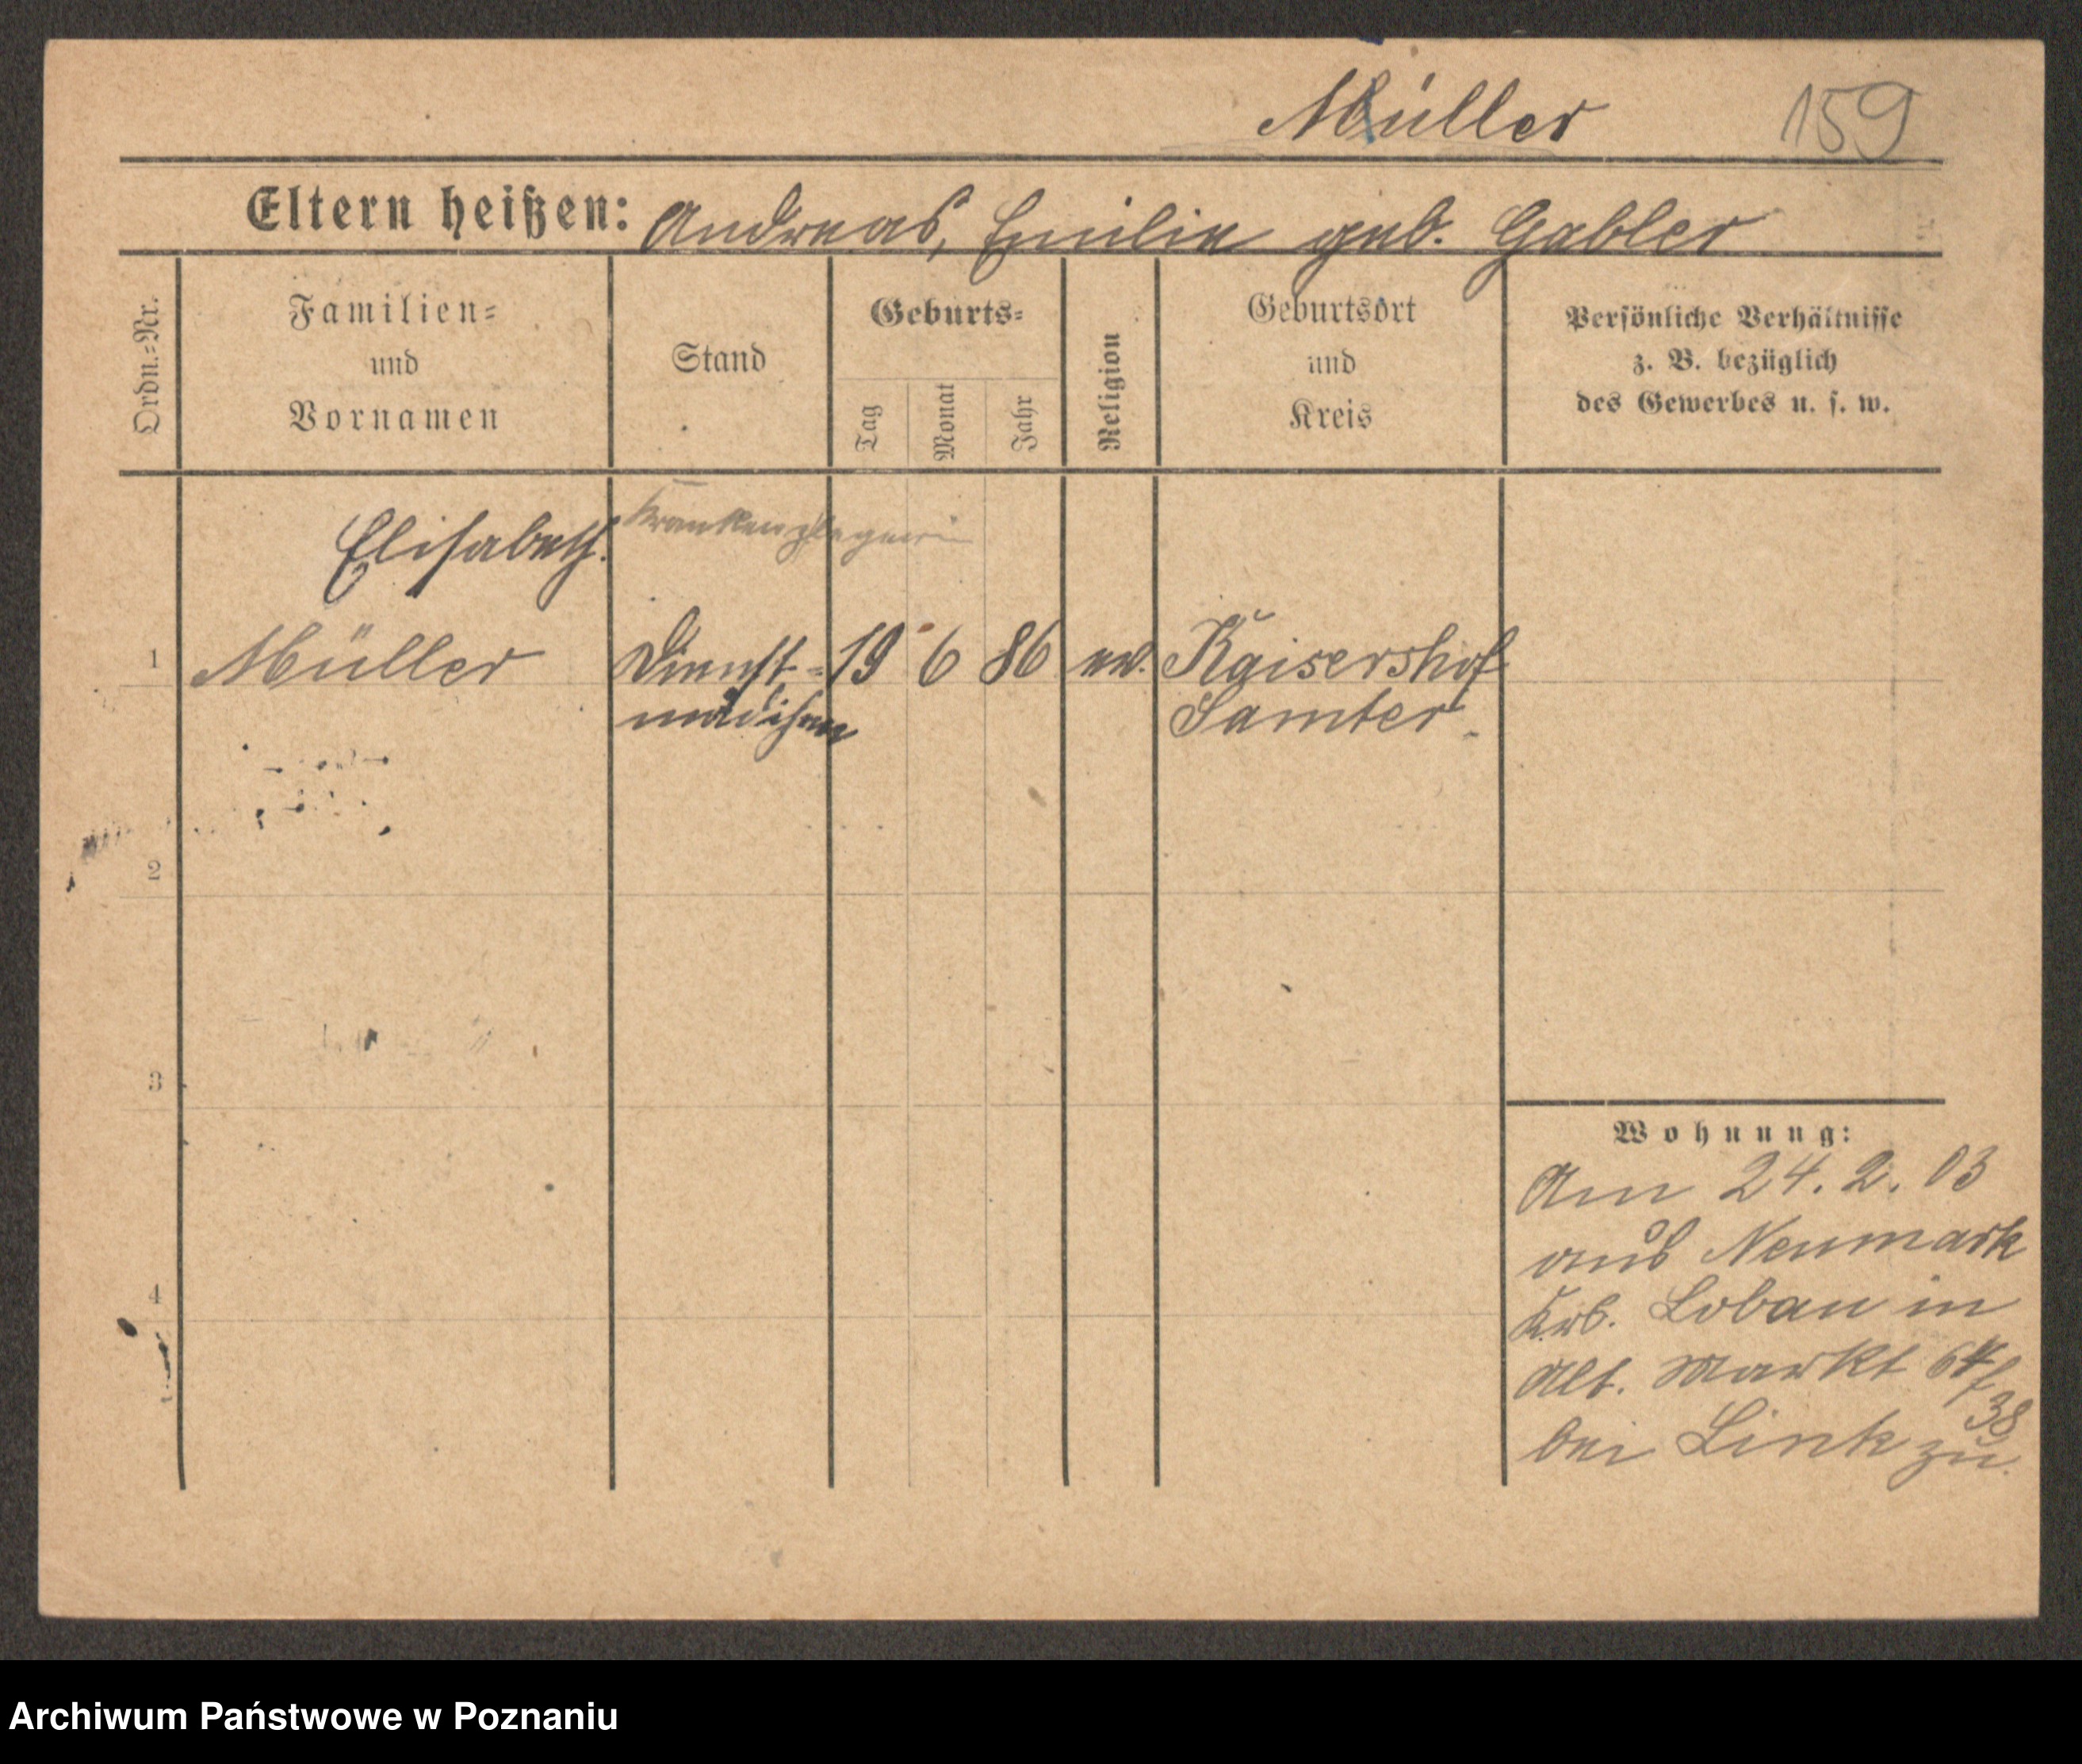 Müller 159
Eltern heißen: Andreas, Emilie geb. Gabler
Ordn.=Nr.
Familien=
und
Vornamen
Stand
Geburts=
Tag
Monat
Jahr
Religion
Geburtsort
und
Kreis
Persönliche Verhältnisse
z. B. bezüglich
des Gewerbes u. s. w.
Krankenpflegerin
Elisabeth.
1 Müller Dienst= 19 6 86 ev. Kaisershof
mädchen Samter
2
3
4
Wohnung:
Am 24. 2. 03
aus Neumark
Krs. Löbau in
Alt. Markt 64/
38
bei Link zu
Archiwum Państwowe w Poznaniu